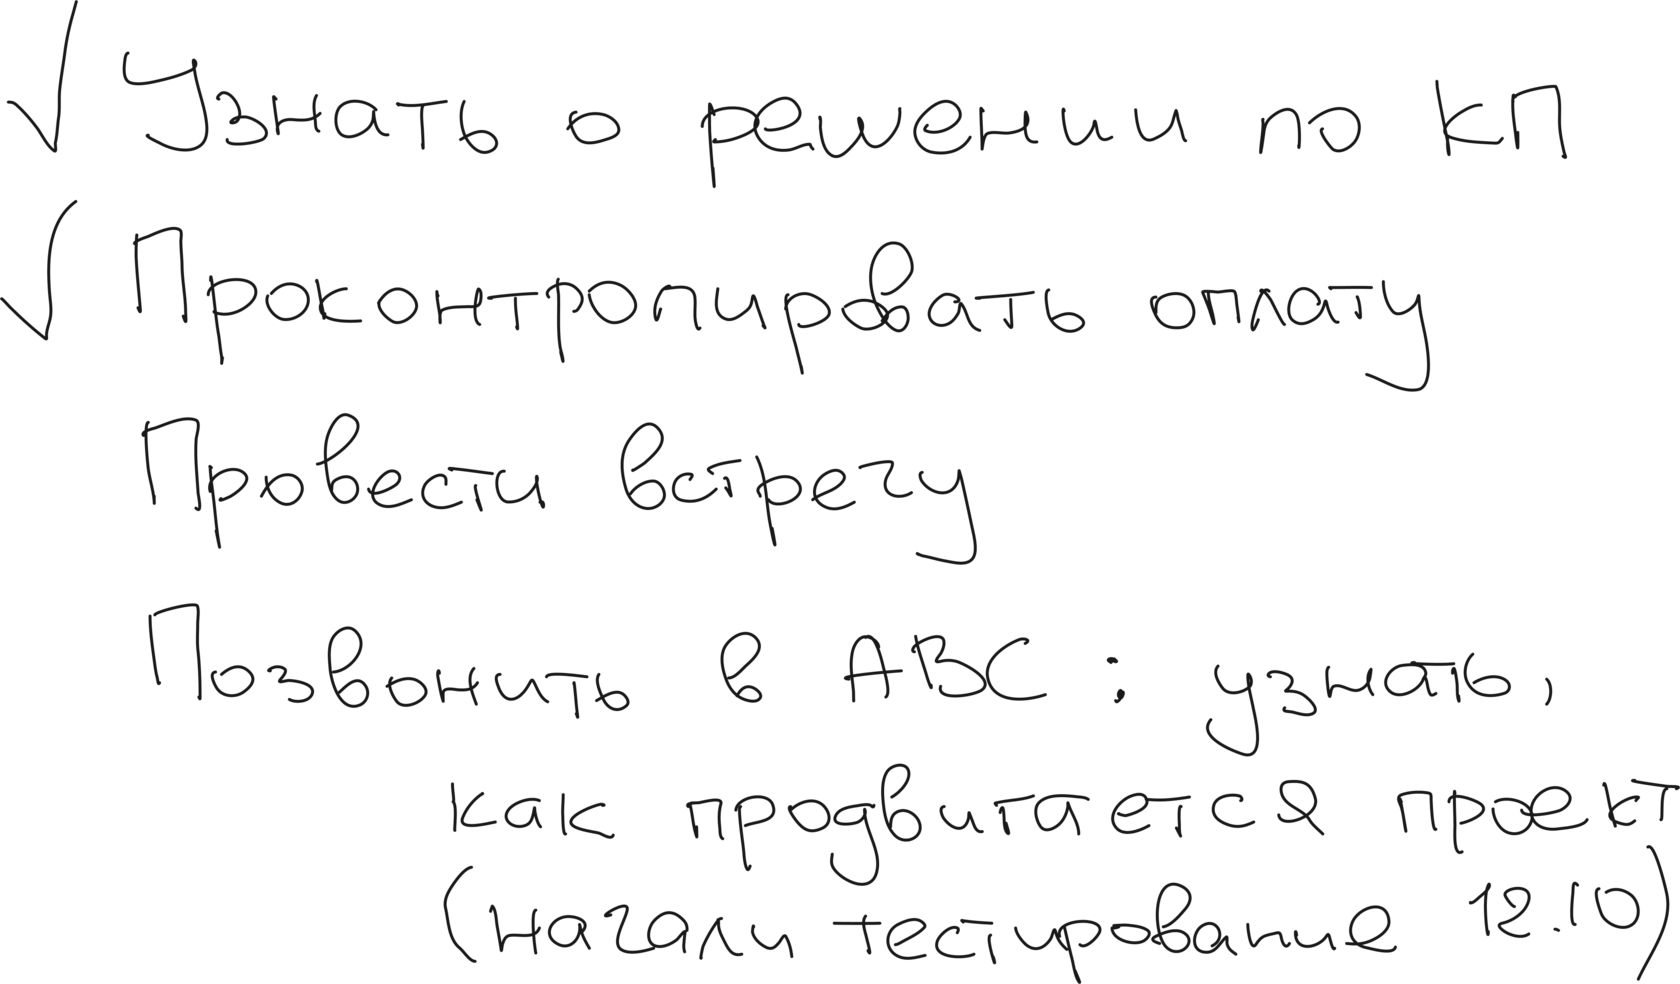 ✓ Узнать о решении по КП
✓ Проконтролировать оплату
Провести встречу
Позвонить в ABC : узнать,
как продвигается проект
(начали тестирование 12.10)